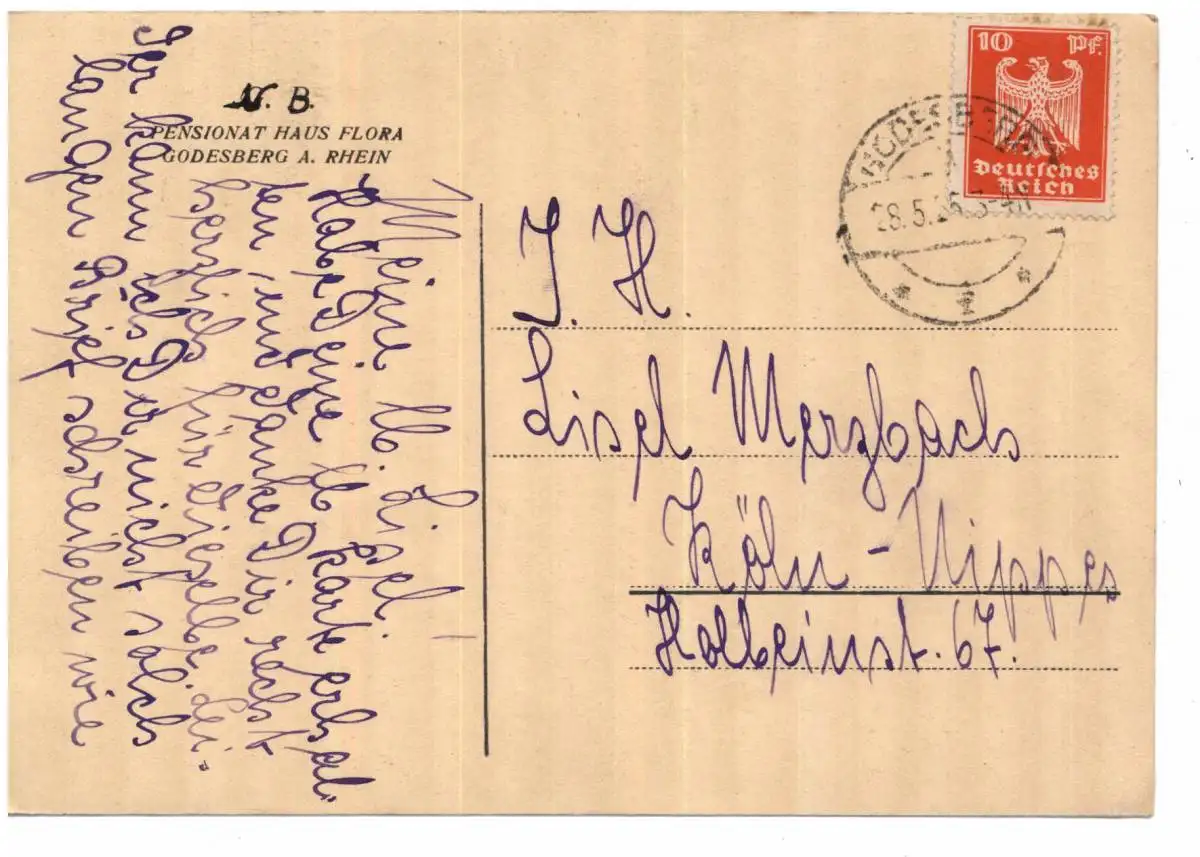 N. B.
PENSIONAT HAUS FLORA
GODESBERG A. RHEIN
Meine lb. Lisel!
Habe Deine lb. Karte erhal-
ten und danke Dir recht
herzlich für dieselbe. Lei-
der kann ich Dir nicht solch
langen Brief schreiben wie
10 Pf.
Deutsches
Reich
GODESBERG
28.5.
J. H.
Lisel Merzbach
Köln-Nippes
Holbeinst. 67.